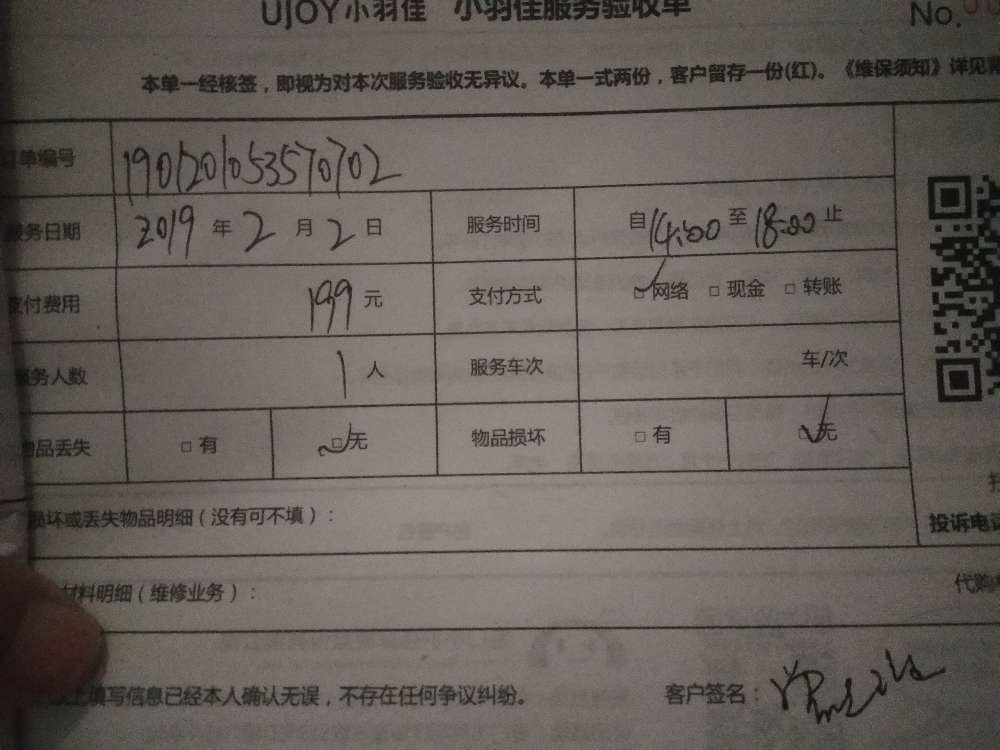 UJOY小羽佳 小羽佳服务验收单
No.
本单一经核签，即视为对本次服务验收无异议。本单一式两份，客户留存一份(红)。《维保须知》详见
订单编号 1901201053570702
服务日期 2019 年 2 月 2 日 服务时间 自 14:00 至 18:00 止
支付费用 199 元 支付方式 □ 网络 □ 现金 □ 转账
服务人数 1 人 服务车次 车/次
物品丢失 □ 有 □ 无 物品损坏 □ 有 □ 无
损坏或丢失物品明细（没有可不填）：
投诉电话
材料明细（维修业务）：
代购
以上填写信息已经本人确认无误，不存在任何争议纠纷。 客户签名：